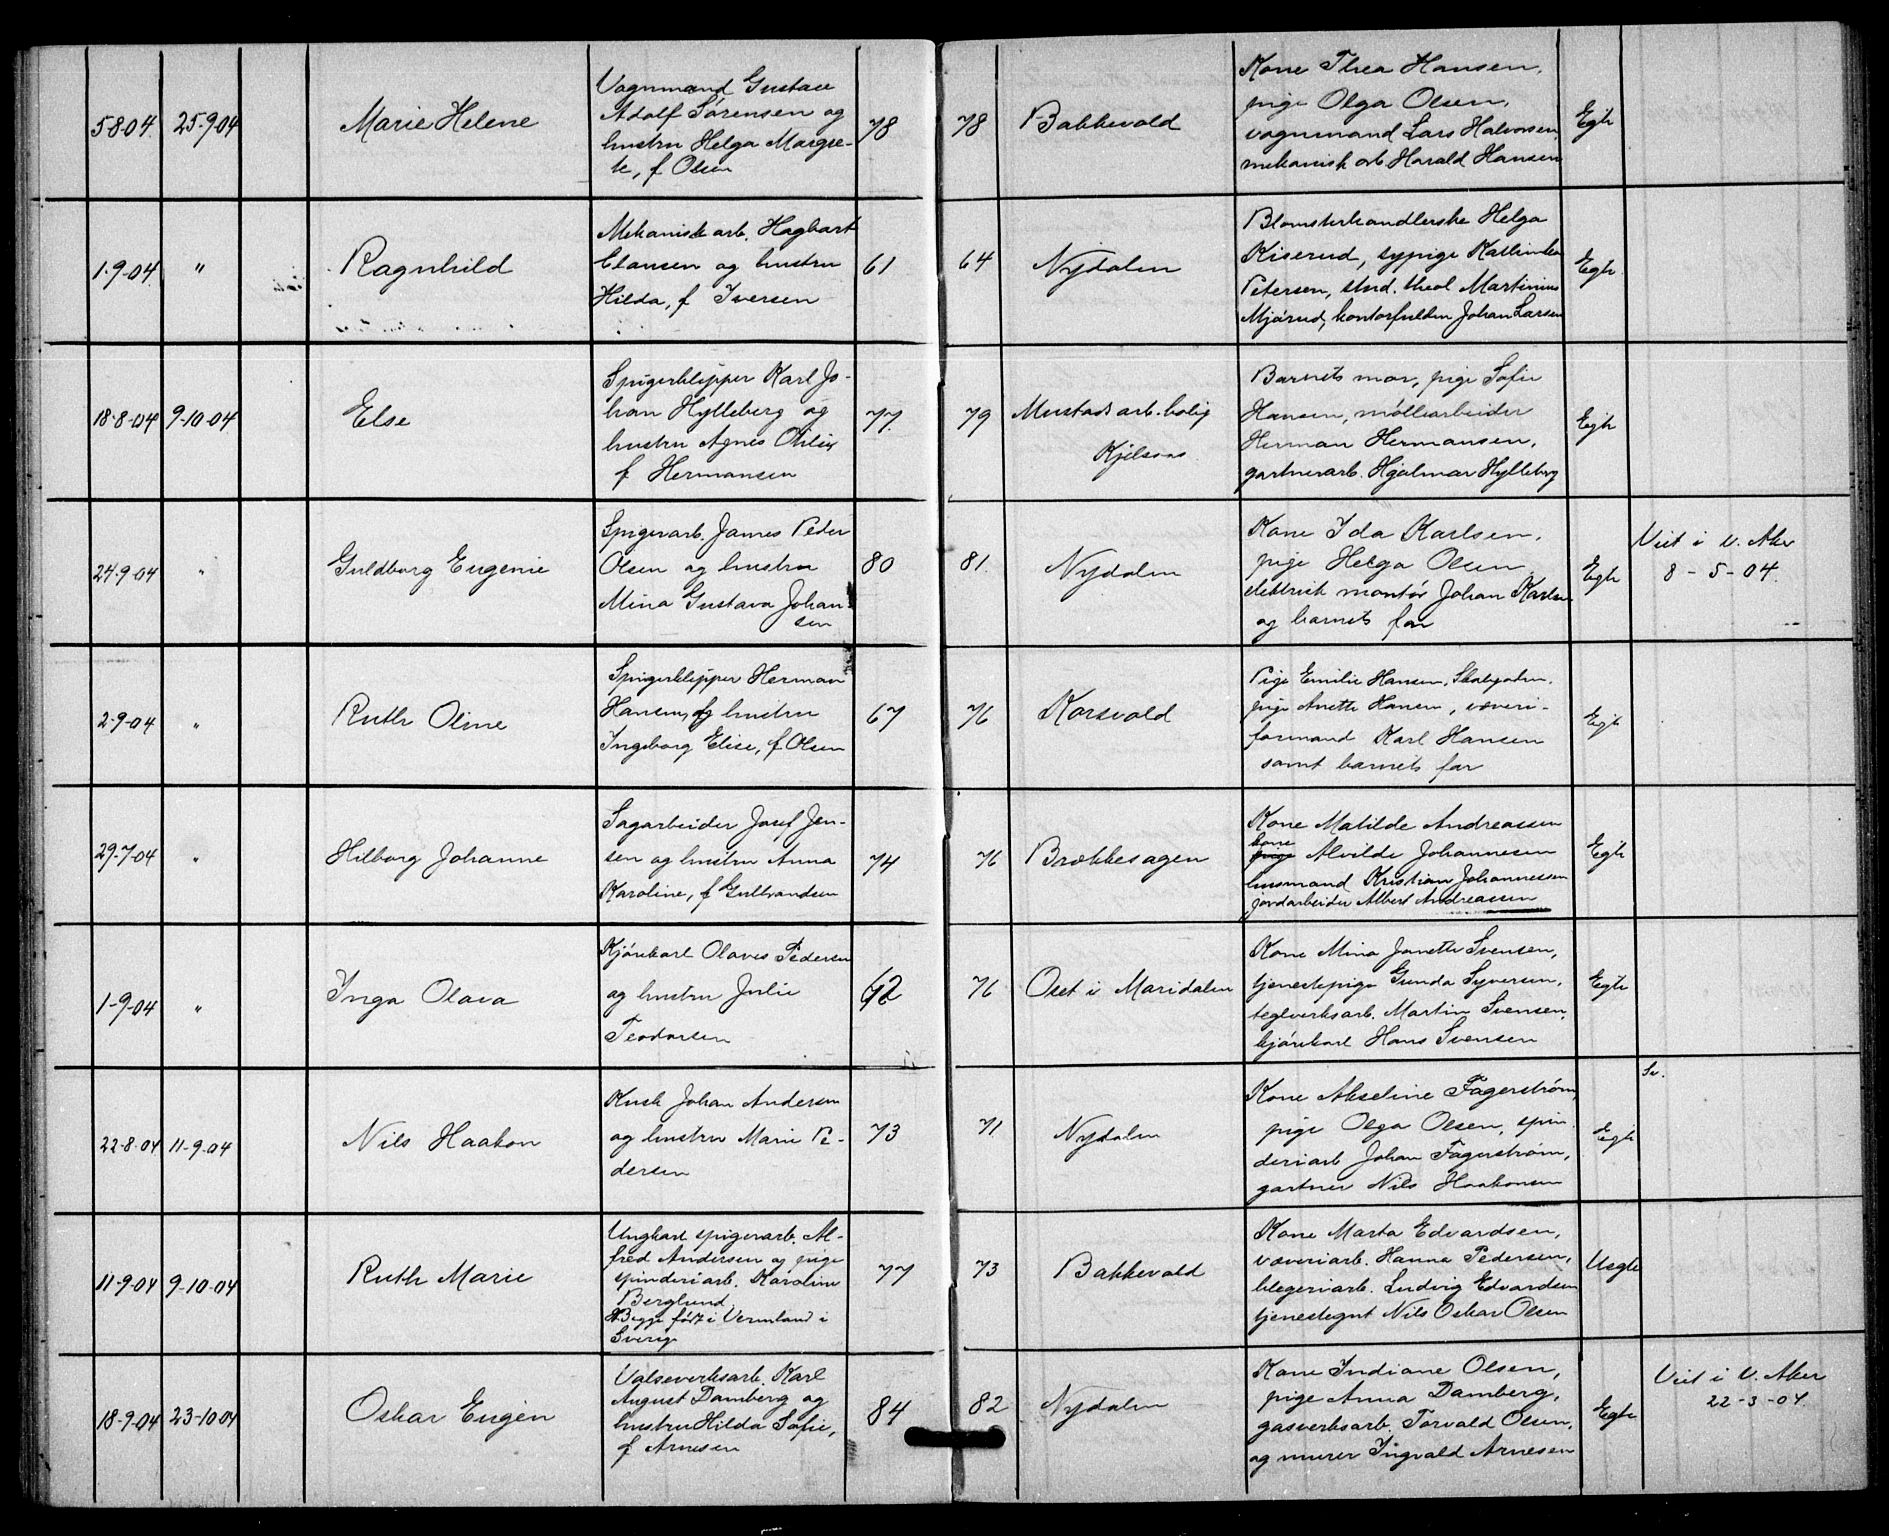 5-8-04. 25-9-04 Marie Helene
Vognmand Gustav
Adolf Sørensen og
hustru Helga Margre-
te, f Olsen
78
78 Bakkevold
Kone Thea Hansen,
pige Olga Olsen,
vognmand Lars Halvorsen,
mekanisk arb Harald Hansen
Egte
1-9-04. " Ragnhild
Mekanisk arb. Hagbart
Clausen og hustru
Hilda, f Iversen
61
64 Nydalen
Blomsterhandlerske Helga
Kiserud, sypige Kathinka
Petersen, stud. theol Martinius
Mjørud, kontorfuldm Johan Larsen
Egte
18-8-04 9-10-04. Else
Spigerklipper Karl Jo-
han Hylleberg og
hustru Agnes Otilie,
f Hermansen
77
79 Mustads arb. bolig
Kjelsaas.
Barnets mor, pige Sofie
Hansen, møllearbeider
Herman Hermansen,
gartnerarb. Hjalmar Hylleberg
Egte
24-9-04 " Guldborg Eugenie
Spigerarb. James Peder
Olsen og hustru
Mina Gustava Johan
sen
80
81. Nydalen
Kone Ida Karlsen,
pige Helga Olsen
elektrisk montør Johan Karlsen
og barnets far
Egte
Viet i V. Aker
8-5-04.
2-9-04 " Ruth Oline
Spigerklipper Herman
Hansen, og hustru
Ingeborg Elise, f Olsen
67
76 Korsvold
Pige Emilie Hansen,
pige Anette Hansen, væveri-
formand Karl Hansen
samt barnets far
Egte
29-7-04 " Hilborg Johanne
Sagarbeider Josef Jen-
sen og hustru Anna
Karoline, f Gulbrandsen
74
76 Brækkesagen
Kone Matilde Andreassen
kone
pige Alvilde Johannesen
husmand Kristian Johannessen
jordarbeider Albert Andreassen
Egte
1-9-04 " Inga Olava
Kjørekarl Olaves Pedersen
og hustru Julie
Teodorsen
62
76 Oset i Maridalen
Kone Mina Janette Svensen,
tjenestepige Gunda Syversen,
teglverksarb. Martin Svensen,
kjørekarl Hans Svensen
Egte
22-8-04 11-9-04 Nils Haakon
Kusk Johan Andersen
og hustru Marie Pe-
dersen
73
71 Nydalen
Kone Akseline Fagerstrøm,
pige Olga Olsen, spin
deriarb Johan Fagerstrøm,
gartner Nils Haakonsen
Egte
Sv.
11-9-04 9-10-04 Ruth Marie
Ungkarl spigerarb. Al-
fred Andersen og pige
spinderiarb. Karoline
Berglund.
Begge født i Vermland i
Sverige
77
73 Bakkevold
Kone Marta Edvardsen,
væveriarb. Hanna Pedersen,
blegeriarb. Ludvig Edvardsen
tjenestegut Nils Oskar Olsen
Uegte
18-9-04 23-10-04 Oskar Eugen
Valseverksarb. Karl
August Damberg og
hustru Hilda Sofie,
f Arnesen
84
82 Nydalen
Kone Indiane Olsen,
pige Anna Damberg,
gasverksarb. Torvald Olsen,
og murer Ingvald Arnesen
Egte
Viet i V. Aker
22-3-04.